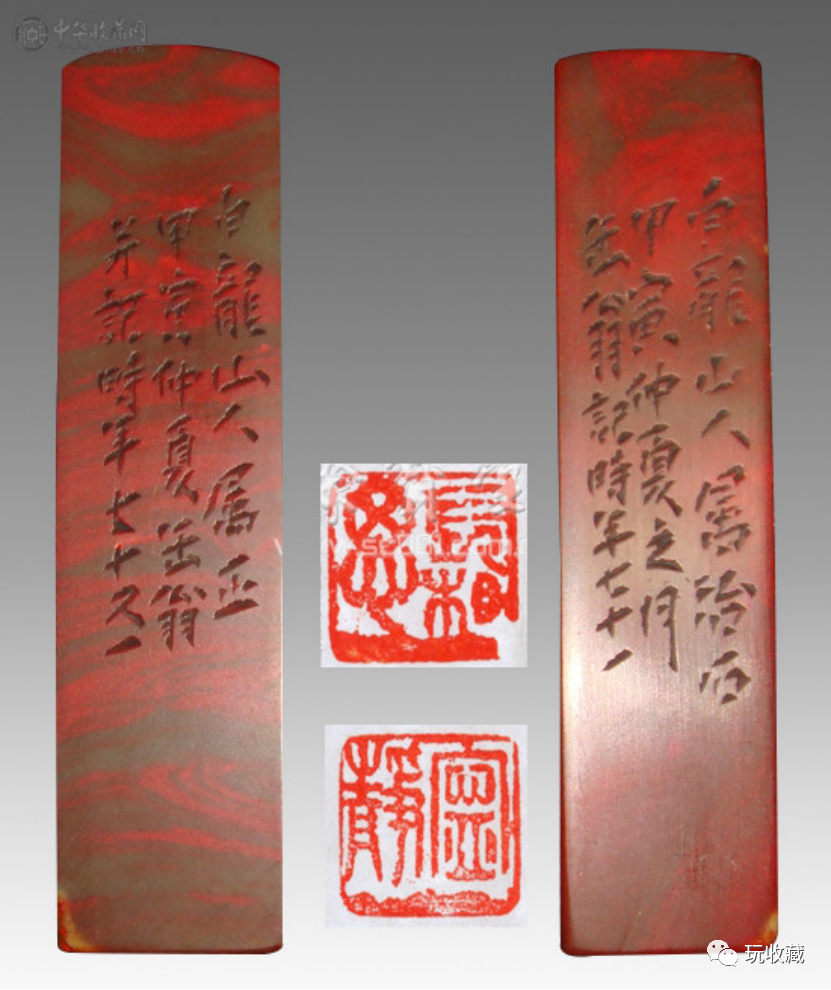 中华收藏网
白龍山人属正
甲寅仲夏缶翁
并記時年七十又一
白龍山人属治石
甲寅仲夏之月
缶翁記時年七十一
長相思
靜
玩收藏